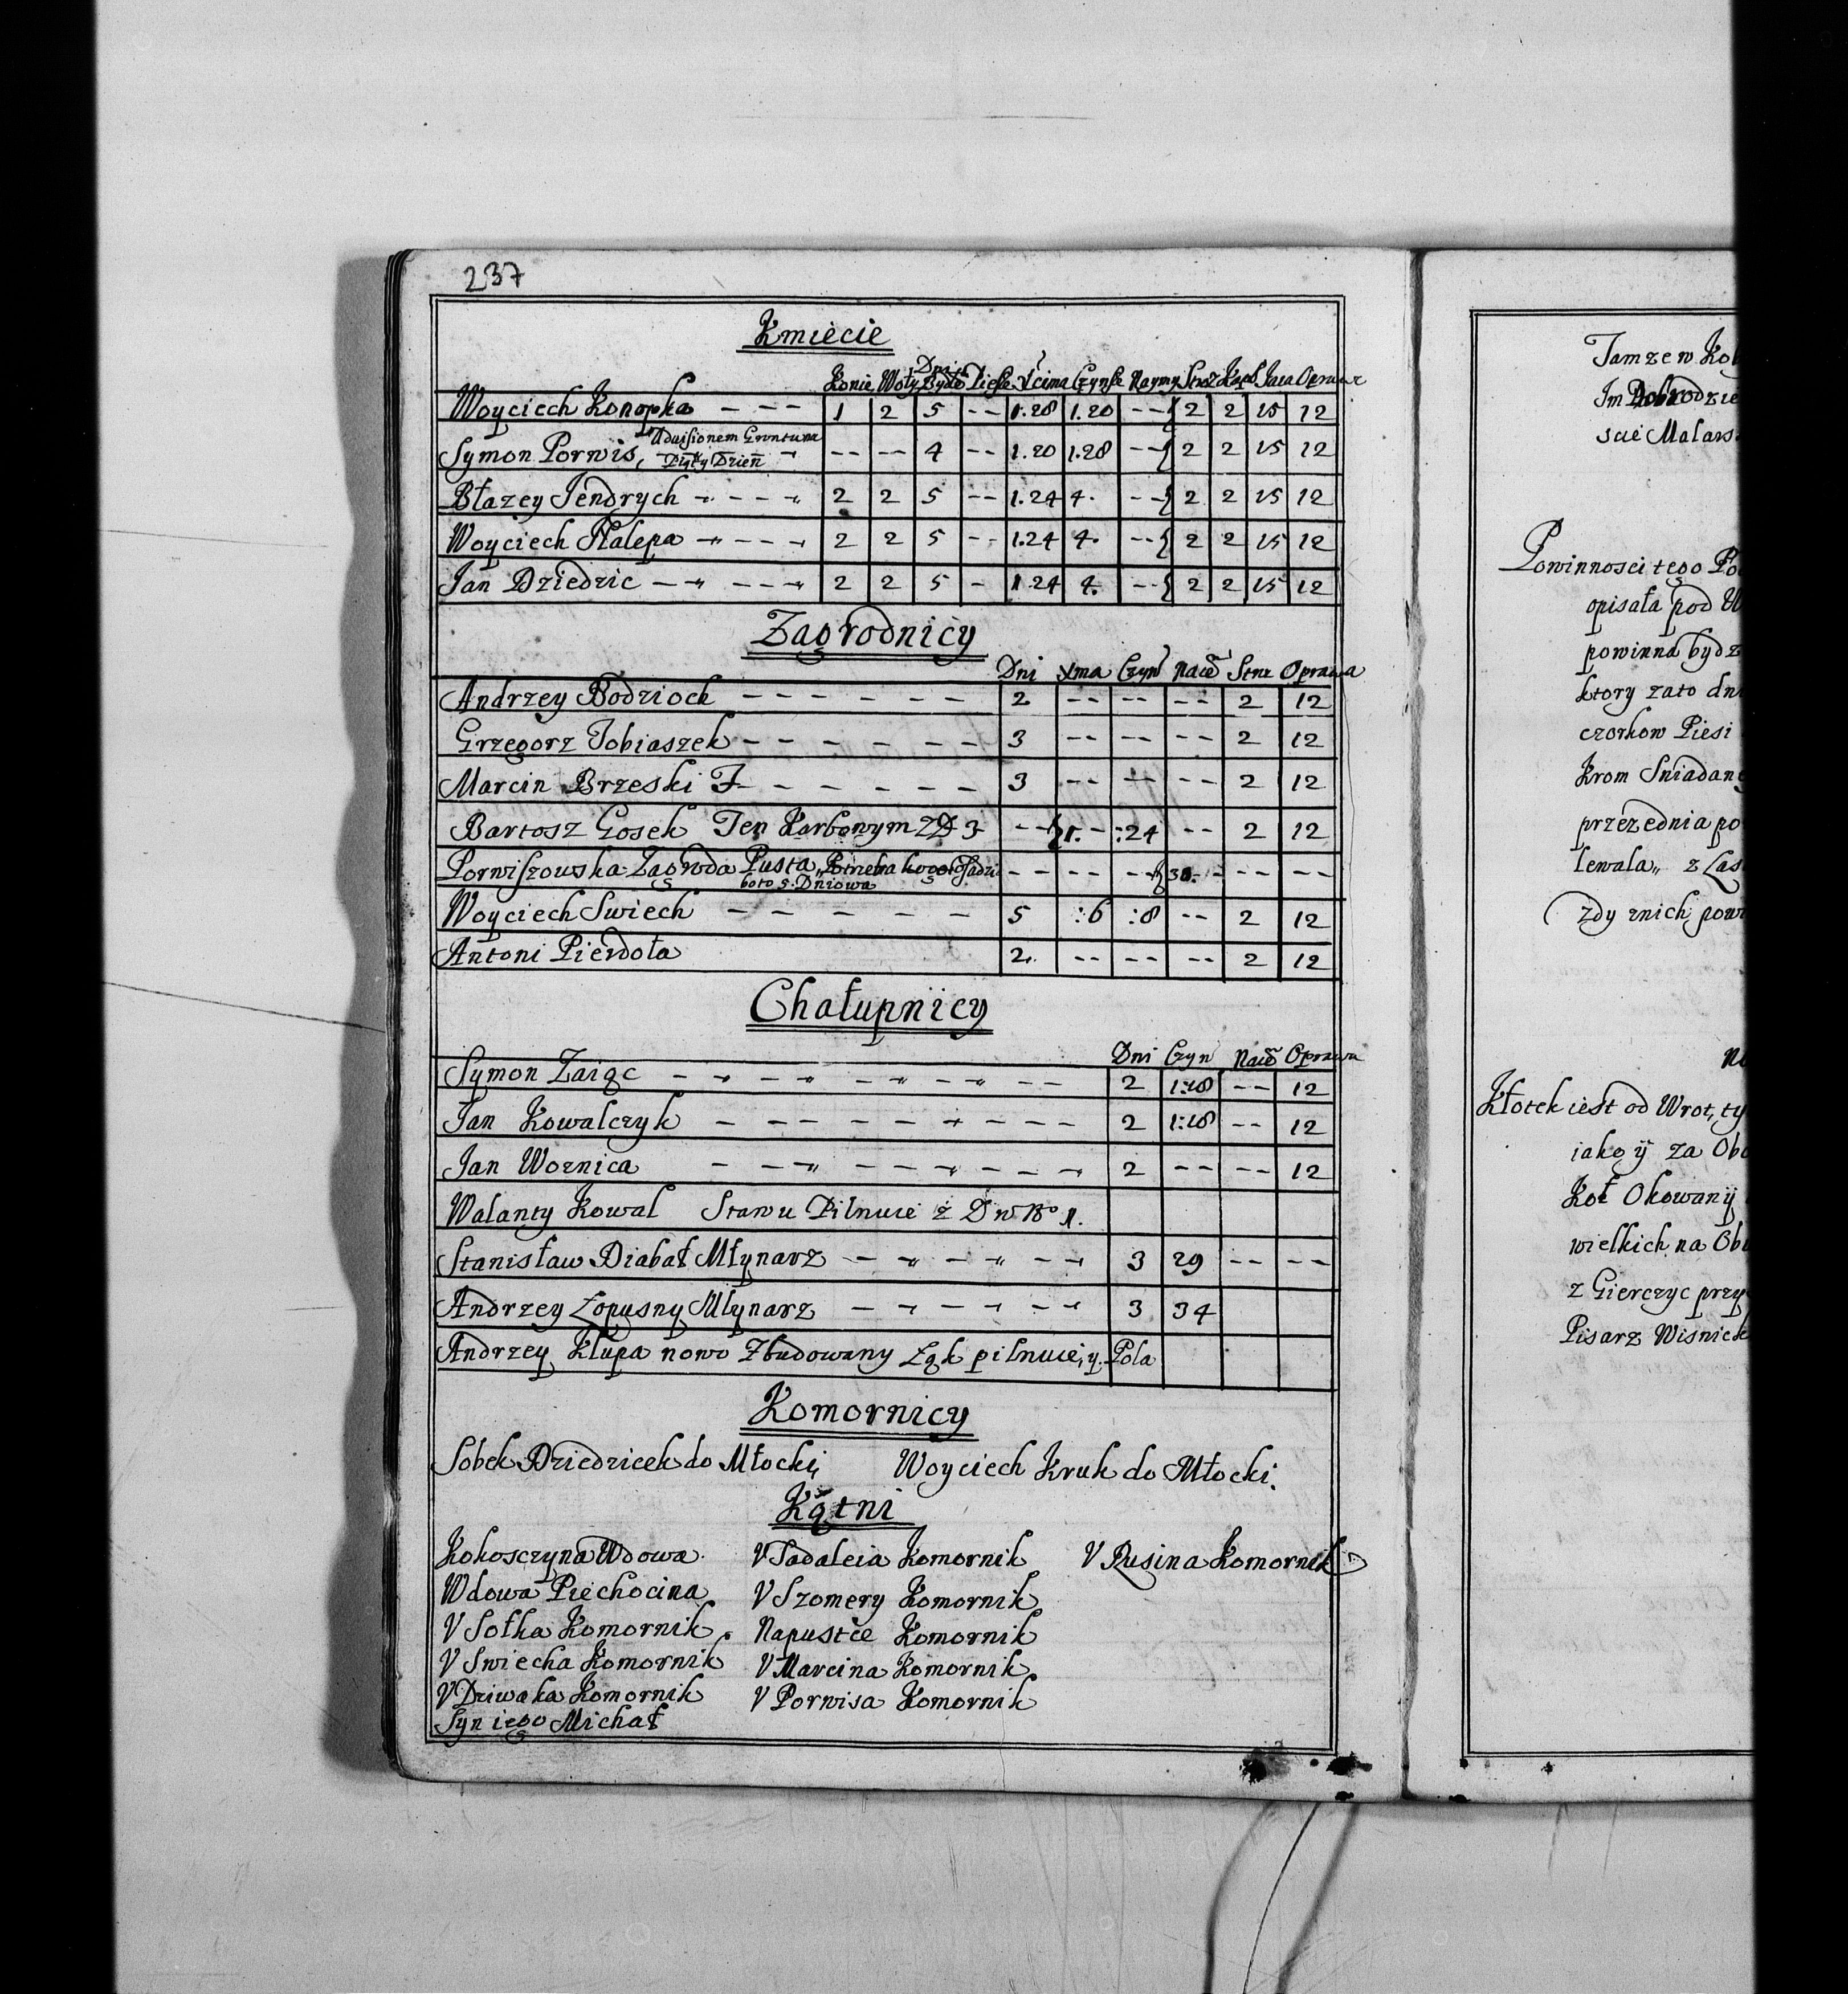 237
Kmiecie
Dni
Konie Woły Bydło Piesze Xcima Czynsz Naymy Stroż Kapł Jaia Oprawa
Woyciech Konopka - - - 1 2 5 -- 1.28 1.20 -- 2 2 15 12
Symon Porwis, Piąty Dzień -- -- 4 -- 1.20 1.28 -- 2 2 15 12
Błazey Jendrych - - - 2 2 5 -- 1.24 4. -- 2 2 15 12
Woyciech Nalepa - - - 2 2 5 -- 1.24 4. -- 2 2 15 12
Jan Dziedzic - - - 2 2 5 - 1.24 4. -- 2 2 15 12
Zagrodnicy
Dni Xma Czyn Naid Stru Oprawa
Andrzey Bodzioch - - - - - - 2 -- -- -- 2 12
Grzegorz Tobiaszek - - - - - - 3 -- -- -- 2 12
Marcin Brzeski - - - - - - 3 -- -- -- 2 12
Bartosz Gosek Ten Karbowym -- 1.- :24 -- 2 12
Porwiszowska Zagroda Pusta „Potrzeba kogo Osadzić -- -- -- 30. -- --
boto 5. Dniowa
Woyciech Swiech - - - - - 5 :6 :8 -- 2 12
Antoni Pierdoła 2. -- -- -- 2 12
Chałupnicy
Dni Czyn Naid Oprawa
Symon Zaiąc - - - - - - 2 1:18 -- 12
Jan Kowalczyk - - - - - - 2 1:18 -- 12
Jan Woznica - - - - - - 2 -- -- 12
Walanty Kowal Stawu Pilnuie z 1.
Stanisław Diabał Młynarz - - - - - 3 29 -- --
Andrzey Łopusny Młynarz - - - - - 3 34
Andrzey Klupa nowo Zbudowany Łąk pilnuie, y. Pola
Komornicy
Sobek Dziedzicek do Młocki, Woyciech Kruk do Młocki.
Kątni
Kokosczyna Wdowa. V Tadaleia Komornik V Rusina Komornik
Wdowa Piechocina V Szomery Komornik
V Sołka Komornik. Napustce Komornik
V Swiecha Komornik V Marcina Komornik
V Dziwaka Komornik V Porwisa Komornik
Syn iego Michał
Tamze w
Im Dobrodzie
Powinnosci tego
opisała pod
powinna bydz
ktory zato
czorkow Piesi
Krom Sniadan
przezednia po
lewala„ z
zdy znich pow
Kłotek iest od Wrot, ty
iako ij za Ob
Koł Okowanij
wielkich na Ob
z Gierczyc przy
Pisarz Wisnick